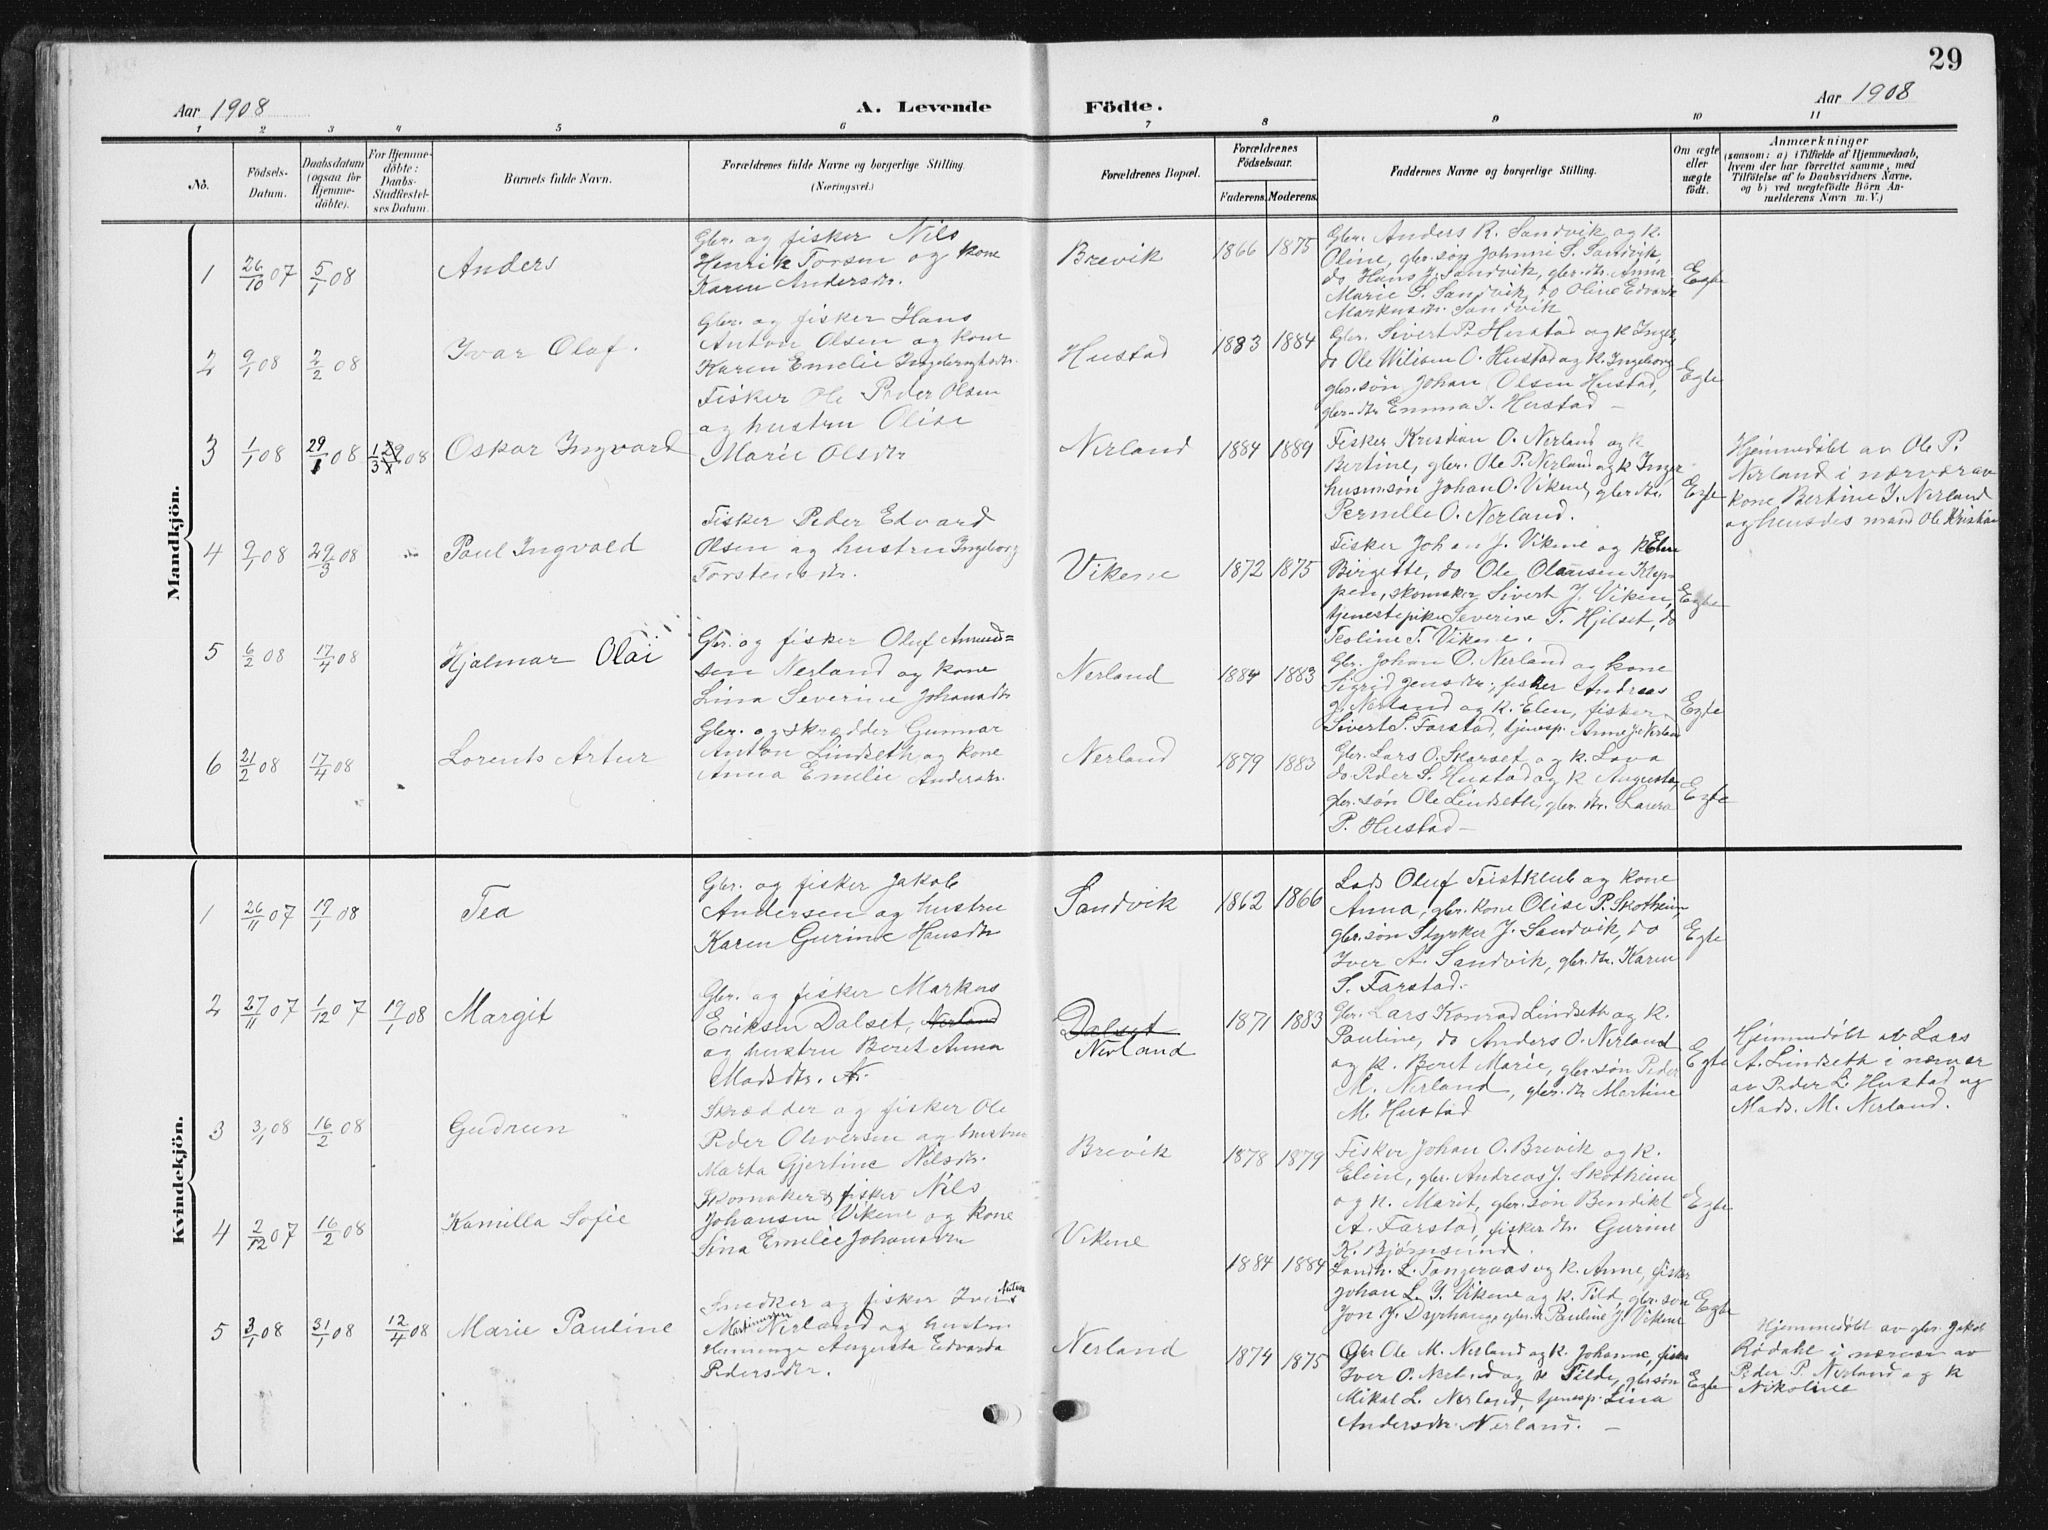 29
Aar 1908
A. Levende Födte.
Aar 1908
1 2 3 4 5 6 7 8 9 10 11
No.
Födsels-Datum.
Daabsdatum (ogsaa for Hjemme-döbte).
For Hjemme-döbte: Daabs-Stadfæstel-ses Datum.
Barnets fulde Navn.
Forældrenes fulde Navne og borgerlige Stilling.
(Næringsvei.)
Forældrenes Bopæl.
Forældrenes Födselsaar.
Faderens. Moderens.
Faddernes Navne og borgerlige Stilling.
Om ægte eller uægte födt.
Anmærkninger
(saasom: a) i Tilfælde af Hjemmedaab,
hvem der har forrettet samme, med
Tilföielse af to Daabsvidners Navne,
og b) ved uægtefödte Börn An-
melderens Navn m. V.)
Mandkjön.
1 26/10 07 5/1 08 Anders
Gbr. og fisker Nils
Henrik Torsen og kone
Karen Andersdtr.
Brevik 1866 1875
Gbr. Anders R. Sandvik og k.
Oline, gbr.søn Johnne S. Sandvik,
do Hans J. Sandvik, gbr.dtr. Anna
Marie S. Sandvik, do Oline Edvarda
Markusdtr. Sandvik
Egte
2 9/1 08 2/2 08 Ivar Olaf.
Gbr. og fisker Hans
Anton Olsen og kone
Karen Emelie Ingebrigtsdtr.
Hustad 1883 1884
Gbr. Sivert P. Hustad og k Inger,
do Ole Wilisen O. Hustad og k. Ingeborg
gbr.søn Johan Olsen Hustad,
gbr.dtr Emma I. Hustad —
Egte
3 1/1 08 29/1 08 1/3 08 Oskar Ingvard
Fisker Ole Peder Olsen
og hustru Olise
Marie Olsdtr
Nerland 1884 1889
Fisker Kristian O. Nerland og k
Bertine, gbr. Ole P. Nerland og k Inger
husm.søn Johan O. Vikene, gbr.dtr.
Pernille O. Nerland.
Egte
Hjemmedøbt av Ole P.
Nerland i nærvær av
kone Bertine J. Nerland
og hendes mand Ole Kristian
4 9/1 08 29/3 08 Paul Ingvald
Fisker Peder Edvard
Olsen og hustru Ingeborg
Torstensdtr.
Vikene 1872 1875
Fisker Johan J. Vikene og k Elen
Birgette, do Ole Olausen Klep-
pen, skomaker Sivert J. Viken,
tjenestepike Severine T. Hjelset, do
Teoline T. Vikene.
Egte
5 6/2 08 17/4 08 Hjalmar Olai
Gbr og fisker Oluf Amund=
sen Nerland og kone
Lina Severine Johansdtr
Nerland 1884 1883
Gbr. Johan O. Nerland og kone
Sigrid Jensdtr., fisker Andreas
J. Nerland og k. Elen, fisker
Sivert S. Farstad, tjenesp. Anne
Egte
6 21/2 08 17/4 08 Lorents Artur
Gbr. og skrædder Gunnar
Anton Lindseth og kone
Anna Emelie Andersdtr.
Nerland 1879 1883
Gbr. Lars O. Skarset og k. Lava
do Peder S. Hustad og k Augusta,
gbr.søn Ole Lindseth, gbr.dtr.
P. Hustad —
Egte
Kvindekjön.
1 26/11 07 19/1 08 Tea
Gbr. og fisker Jakob
Andersen og hustru
Karen Gurine Hansdtr
Sandvik 1862 1866
Lods Oluf Tustklub og kone
Anna, gbr.kone Olise P. Skotheim,
gbr.søn Styrker J. Sandvik, do
Iver A. Sandvik, gbr.dtr. Karen
S. Farstad.
Egte
2 27/11 07 1/12 07 19/1 08 Margit
Gbr. og fisker Markus
Eriksen Dalset, Nerland
og hustru Beret Anna
Madsdtr. N.
Dalset
Nerland 1871 1883
Gbr. Lars Konrad Lindseth og k.
Pauline, do Anders O. Nerland
og k. Beret Marie, gbr.søn Peder
M. Nerland, gbr.dtr Martine
M. Hustad
Egte
Hjemmedøbt av Lars
A. Lindseth i nærvær
av Peder L. Hustad og
Mads. M. Nerland.
3 3/1 08 16/2 08 Gudrun
Skrædder og fisker Ole
Peder Oliversen og hustru
Marta Gjertine Nilsdtr.
Brevik 1878 1879
Fisker Johan O. Brevik og k.
Eline, gbr. Andreas J. Skotheim
og k. Marit, gbr.søn Bendikt
A. Farstad, fisker dtr. Gurine
K. Bjørnsund.
Egte
4 2/12 07 16/2 08 Kamilla Sofie
Skomaker & fisker Nils
Johansen Vikene og kone
Sina Emelie Johansdtr
Vikene 1884 1884
Landh. L. Tangeraas og k. Anne, fisker
Johan L. Y. Vikene og k. Tild, gbr.søn
Jon J. Dyrhaug, gbr.dtr Pauline J. Vikene
Egte
5 3/1 08 31/1 08 12/4 08 Marie Pauline
Smedker og fisker Iver Anton
Martinusen Nerland og hustru
Henninge Augusta Edvarda
Pedersdtr.
Nerland 1874 1875
Gbr Ole M. Nerland og k. Johanne, fisker
Iver O. Nerland og k Tilde, gbr.søn
Mikal L. Nerland, tjenesp. Lina
Andersdtr. Nerland. —
Egte
Hjemmedøbt av gbr. Jakob
Rødahl i nærvær av
Peder P. Nerland og k
Nikoline